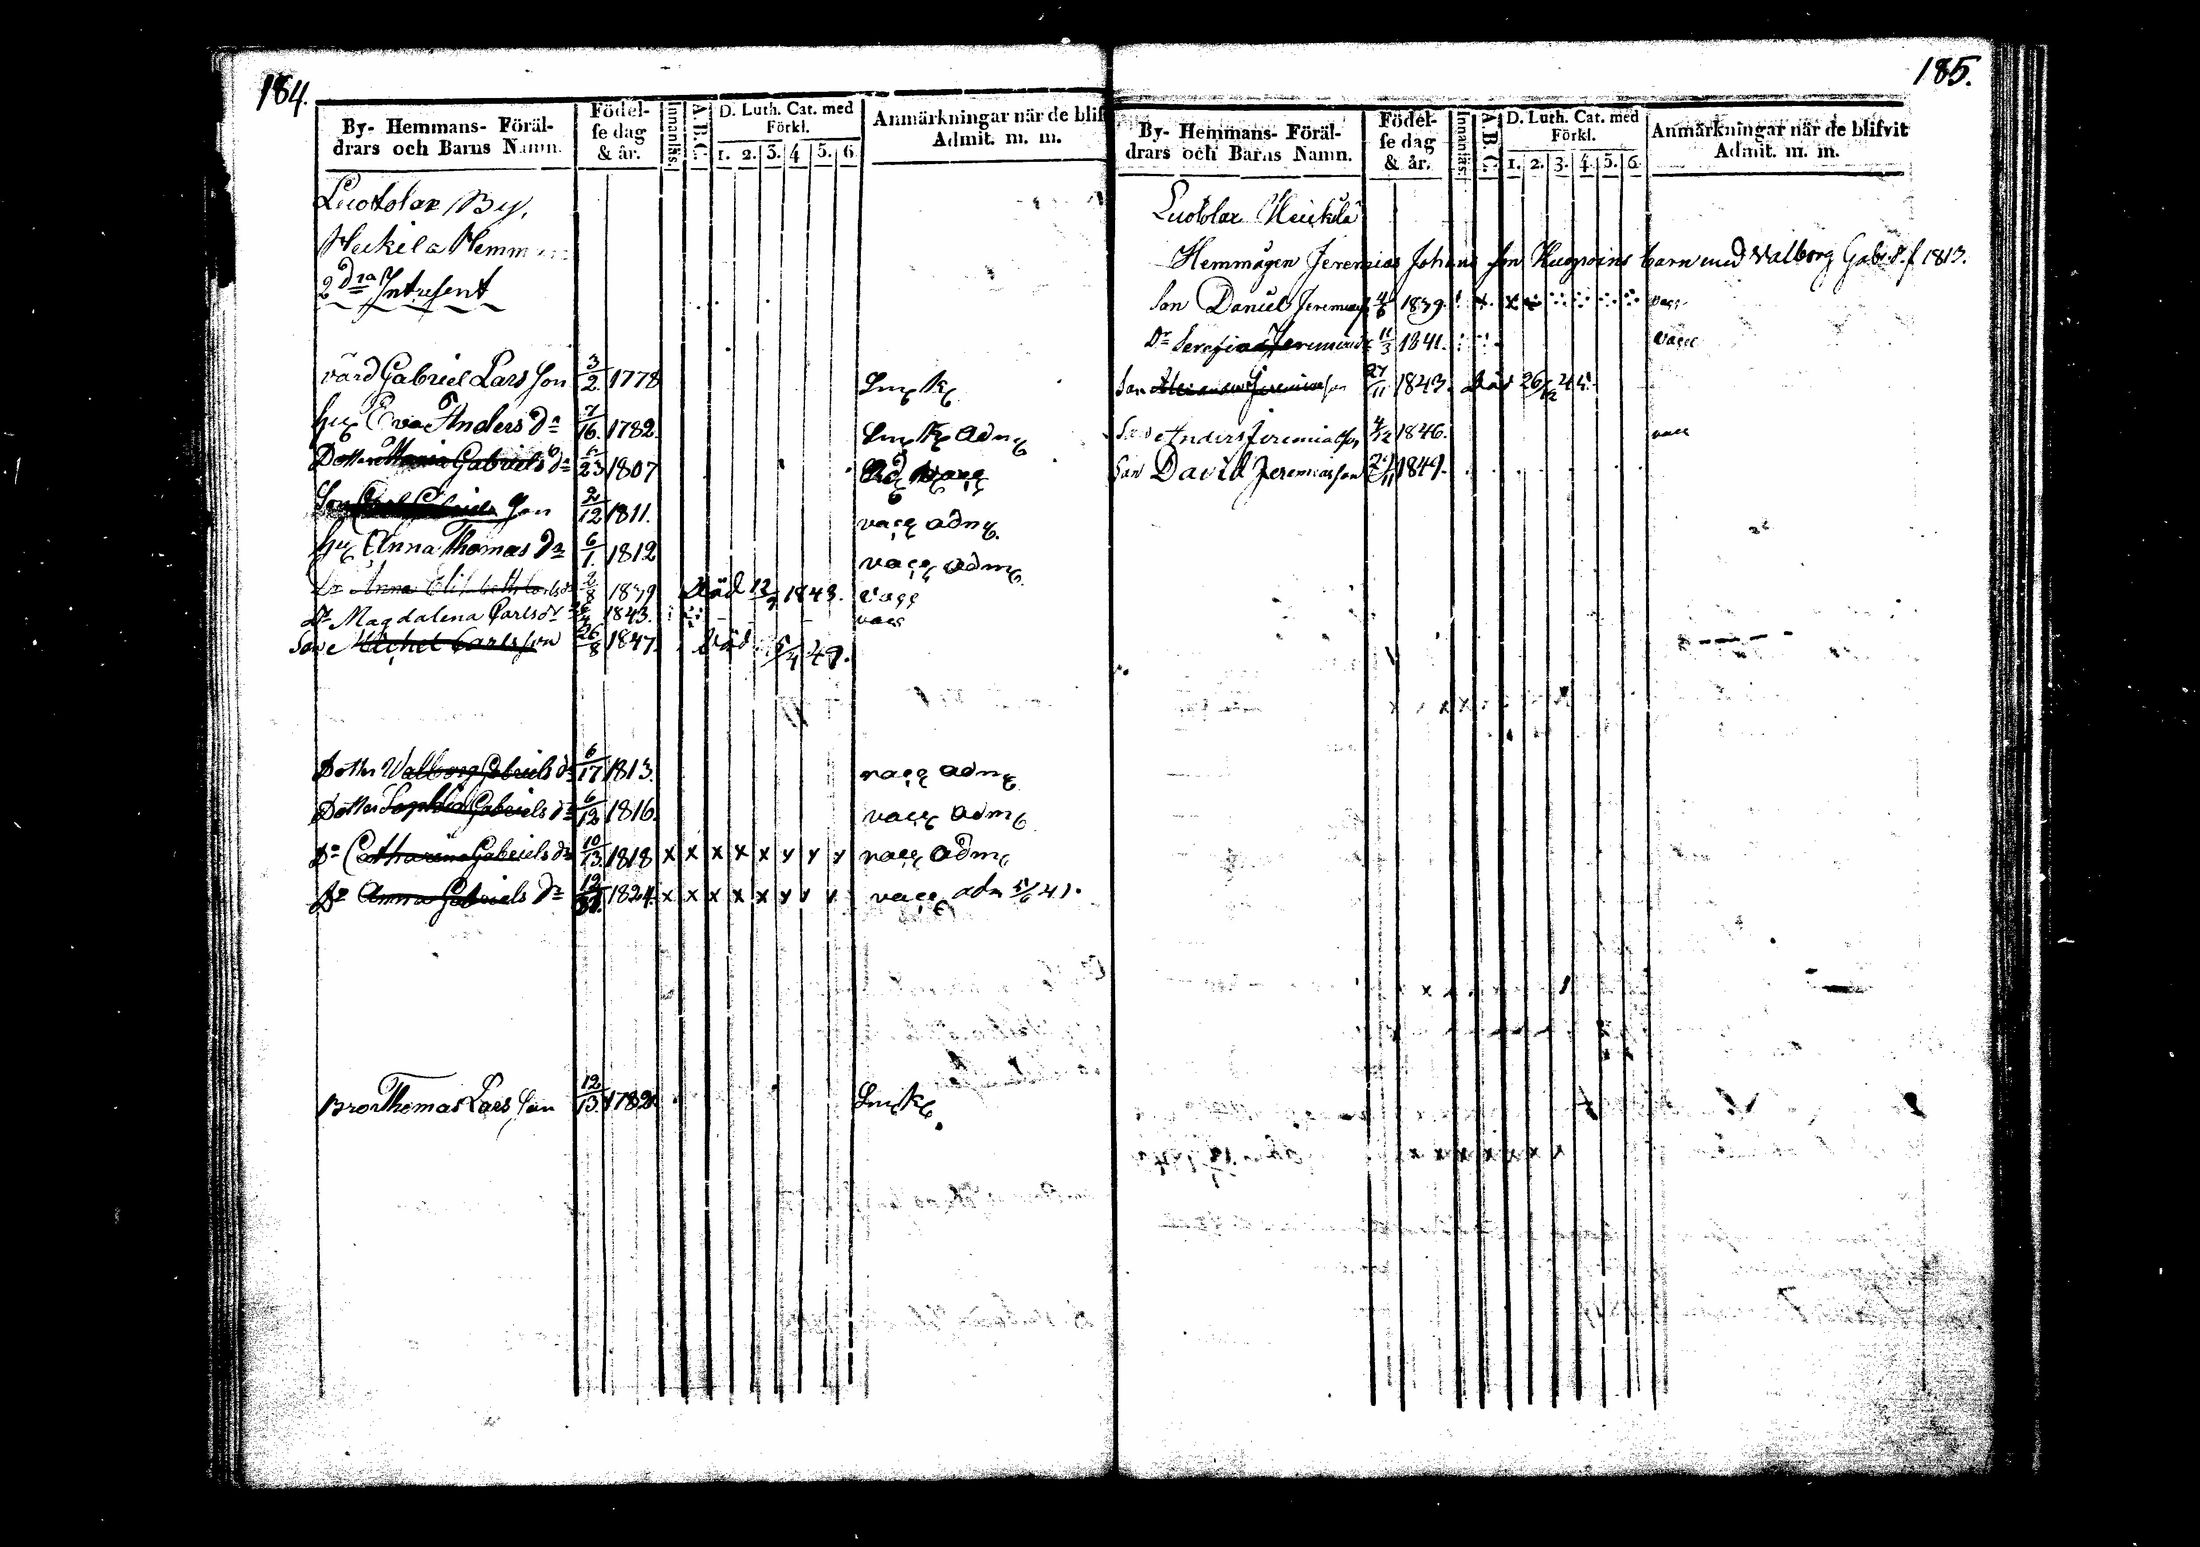 184.
By- Hemmans- Föräl-
drars och Barns Namn.
Födel-
se dag
& år.
Innanläs.
A.B.C.
D. Luth. Cat. med
Förkl.
1. 2. 3. 4 5. 6
Anmärkningar när de blif
Admit. m. m.
Luotolax By,
Heikilä Hemm
2dra Intresent
värd Gabriel Lars son 3/2 1778 Smk
Hu Eva Anders dr 7/16. 1782. Smk adm
Dotter Maria Gabriels dr 23 1807
Son Carl Gabriels son 2/12 1811. vacc adm
Hu Anna Thomas dr 6/1. 1812 vacc adm
Dr Anna Elisabeth Carlsdr 2/8 1839 Död 12/9 1843. vacc
Dr Magdalena Carlsdr 1843. vacc
Son Michel Carlsson 26/8 1847. Död 49.
Dotter Walborg Gabriels dr 6/17 1813. vacc adm
Dotter Sophia Gabriels dr 6/12 1816 vacc adm
Dr Catharina Gabriels dr 10/13 1818 x x x x x y y y vacc adm
Dr Anna Gabriels dr 1824. x x x x x y y y vacc adm 5/6 41.
Bror Thomas Lars son 12/13 1782 Smk
185.
By- Hemmans- Föräl-
drars och Barns Namn.
Födel-
se dag
& år.
Innanläs.
A.B.C.
D. Luth. Cat. med
Förkl.
1. 2. 3. 4. 5. 6.
Anmärkningar när de blifvit
Admit. m. m.
Luotolax Heikilä
Hemmågen Jeremias Johans son barn med Walborg Gabr. d. f. 1813.
Son Daniel Jeremias 4/6 1839. vacc
Dr Serafia Jeremiæ dr 11/3 1841. vacc
Son Jeremias son 27/11 1843. Död 26/12 45.
Son Anders Jeremias son 4/12 1846. vacc
Son David Jeremias son 1849.